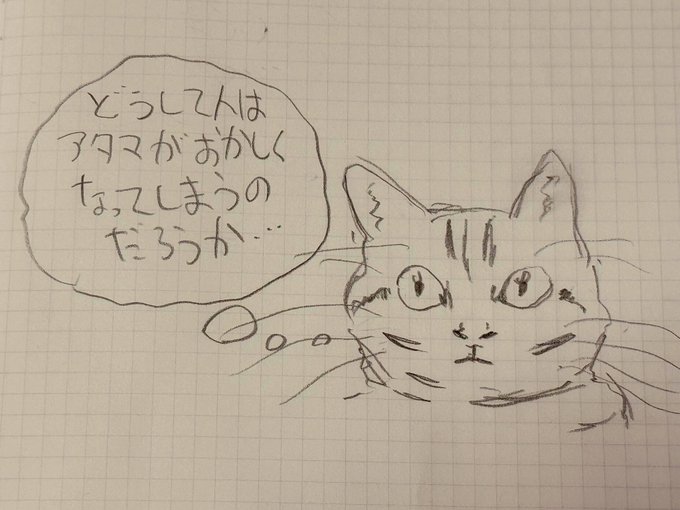 どうして人は
アタマがおかしく
なってしまうの
だろうか…